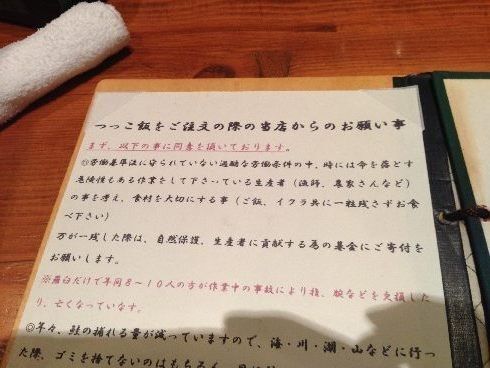 つっこ飯をご注文の際の当店からのお願い事
まず、以下の事に同意を頂いております。
◎労働基準法に守られていない過酷な労働条件の中、時には命を落す
危険性もある作業をして下さっている生産者（漁師、農家さんなど）
の事を考え、食材を大切にする事（ご飯、イクラ共に一粒残さずお食
べ下さい）
万が一残した際は、自然保護、生産者に貢献する為の募金にご寄付を
お願いします。
※羅臼だけで年間8～10人の方が作業中の事故により指、腕などを欠損した
り、亡くなっています。
◎年々、鮭の捕れる量が減っていますので、海・川・湖・山などに行っ
た際、ゴミを捨てないのはもちろん、